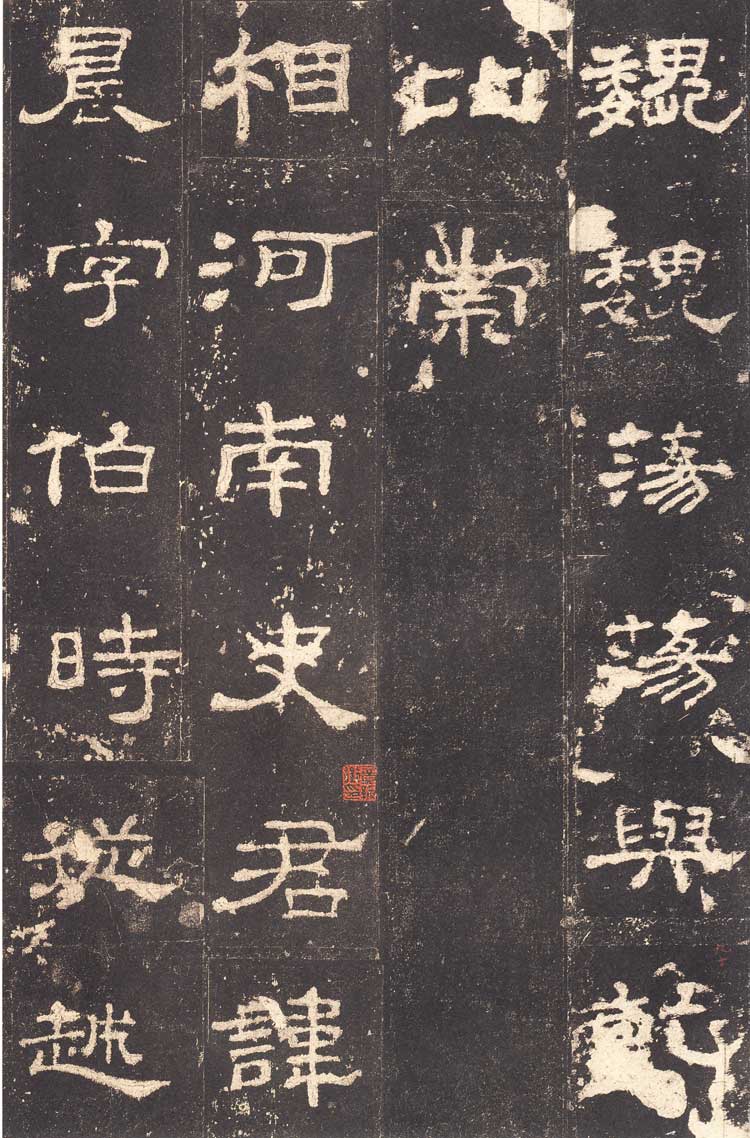 魏魏蕩蕩與乾
比崇
相河南史君諱
晨字伯時從越